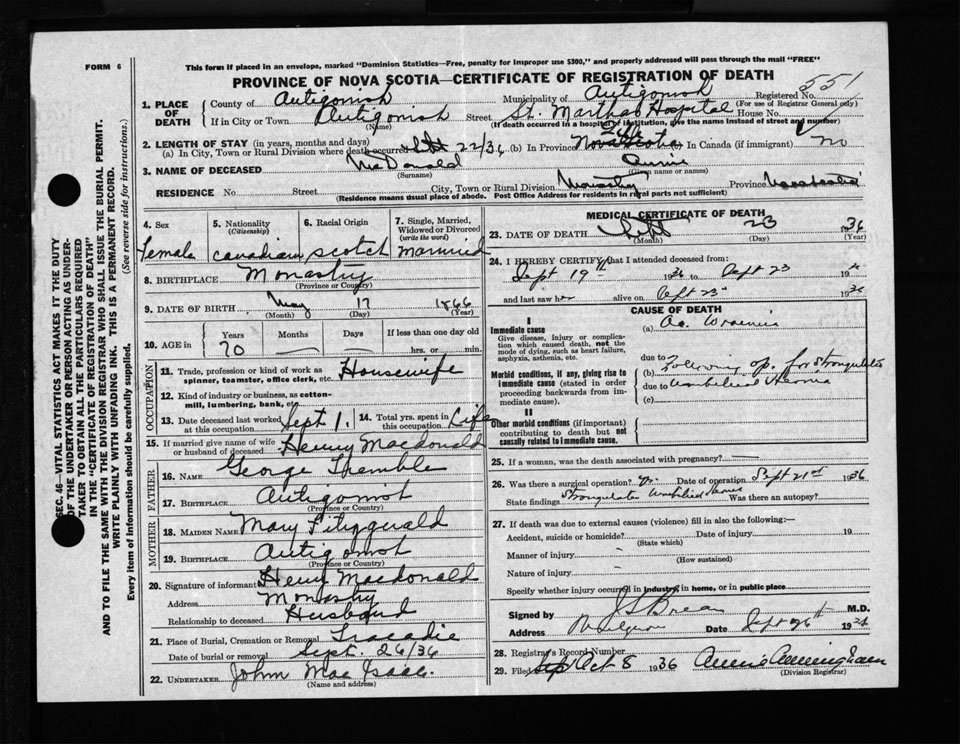 FORM 6
This form if placed in an envelope, marked "Dominion Statistics—Free, penalty for improper use $300," and properly addressed will pass through the mail "FREE"
PROVINCE OF NOVA SCOTIA—CERTIFICATE OF REGISTRATION OF DEATH
551
1. PLACE OF DEATH
County of Antigonish Municipality of Antigonish Registered No.
(For use of Registrar General only)
If in City or Town Antigonish Street St. Marthas Hospital House No.
(Name) (If death occurred in a hospital or institution, give the name instead of street and number)
2. LENGTH OF STAY (in years, months and days)
(a) In City, Town or Rural Division where death occurred Sept 22/36 (b) In Province Life Nova Scotia In Canada (if immigrant) no
3. NAME OF DECEASED McDonald Annie
(Surname) (Given name or names)
RESIDENCE No. Street City, Town or Rural Division Monastry Province Nova Scotia
(Residence means usual place of abode. Post Office Address for residents in rural parts not sufficient)
4. Sex Female
5. Nationality (Citizenship) Canadian
6. Racial Origin Scotch
7. Single, Married, Widowed or Divorced (write the word) Married
8. BIRTHPLACE Monastry
(Province or Country)
9. DATE OF BIRTH May 17 1866
(Month) (Day) (Year)
10. AGE in Years Months Days If less than one day old
70 — — hrs. or min.
OCCUPATION
11. Trade, profession or kind of work as spinner, teamster, office clerk, etc. Housewife
12. Kind of industry or business, as cotton-mill, lumbering, bank, etc.
13. Date deceased last worked at this occupation Sept 1.
14. Total yrs. spent in this occupation Life
15. If married give name of wife or husband of deceased Henry Macdonald
FATHER
16. NAME George Tremble
17. BIRTHPLACE Antigonish
MOTHER
18. MAIDEN NAME Mary Fitzgerald
19. BIRTHPLACE Antigonish
(Province or Country)
20. Signature of informant Henry Macdonald
Address Monastry
Relationship to deceased Husband
21. Place of Burial, Cremation or Removal Tracadie
Date of burial or removal Sept. 26/36
22. UNDERTAKER John Mac Isaac.
(Name and address)
MEDICAL CERTIFICATE OF DEATH
23. DATE OF DEATH Sept 23 1936
(Month) (Day) (Year)
24. I HEREBY CERTIFY that I attended deceased from:
Sept 19th 1936 to Sept 23 19
and last saw her alive on Sept 23 1936
CAUSE OF DEATH
I
Immediate cause
Give disease, injury or complication which caused death, not the mode of dying, such as heart failure, asphyxia, asthenia, etc.
(a) Ac. Uraemia
due to
Morbid conditions, if any, giving rise to immediate cause (stated in order proceeding backwards from immediate cause).
(b) Following op. for Strangulated
due to Umbilical Hernia
(c)
II
Other morbid conditions (if important) contributing to death but not causally related to immediate cause.
25. If a woman, was the death associated with pregnancy? —
26. Was there a surgical operation? Yes. Date of operation Sept 21st 1936
State findings Strangulated Umbilical Hernia Was there an autopsy?
27. If death was due to external causes (violence) fill in also the following:—
Accident, suicide or homicide? Date of injury 19
(State which)
Manner of injury
(How sustained)
Nature of injury
Specify whether injury occurred in industry, in home, or in public place
Signed by M.D.
Address Date Sept 26th 19
28. Registrar's Record Number
29. Filed Oct 8 1936 Annie Cunningham
(Division Registrar)
SEC. 46—VITAL STATISTICS ACT MAKES IT THE DUTY
OF THE UNDERTAKER OR PERSON ACTING AS UNDERTAKER TO OBTAIN ALL THE PARTICULARS REQUIRED
IN THE "CERTIFICATE OF REGISTRATION OF DEATH"
AND TO FILE THE SAME WITH THE DIVISION REGISTRAR WHO SHALL ISSUE THE BURIAL PERMIT.
WRITE PLAINLY WITH UNFADING INK. THIS IS A PERMANENT RECORD.
Every item of information should be carefully supplied. (See reverse side for instructions.)